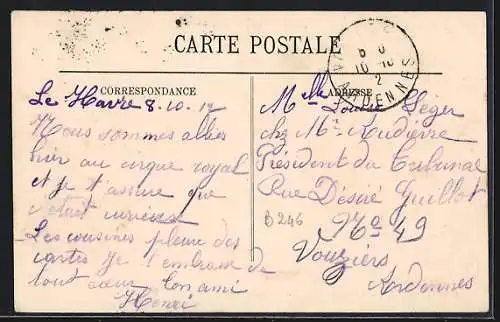 CARTE POSTALE
CORRESPONDANCE
ADRESSE
Le Havre 8.10.12
Nous sommes allés
hier au cirque royal
et je t'assure que
c'était curieux
Les cousines pleure des
cartes Je t'embrasse de
tout cœur ton ami
Henri
Mlle Louise Léger
chez Mr Audierre
Président du Tribunal
Rue Désiré Guillot
No 49
Vouziers
Ardennes
B 246
ARDENNES